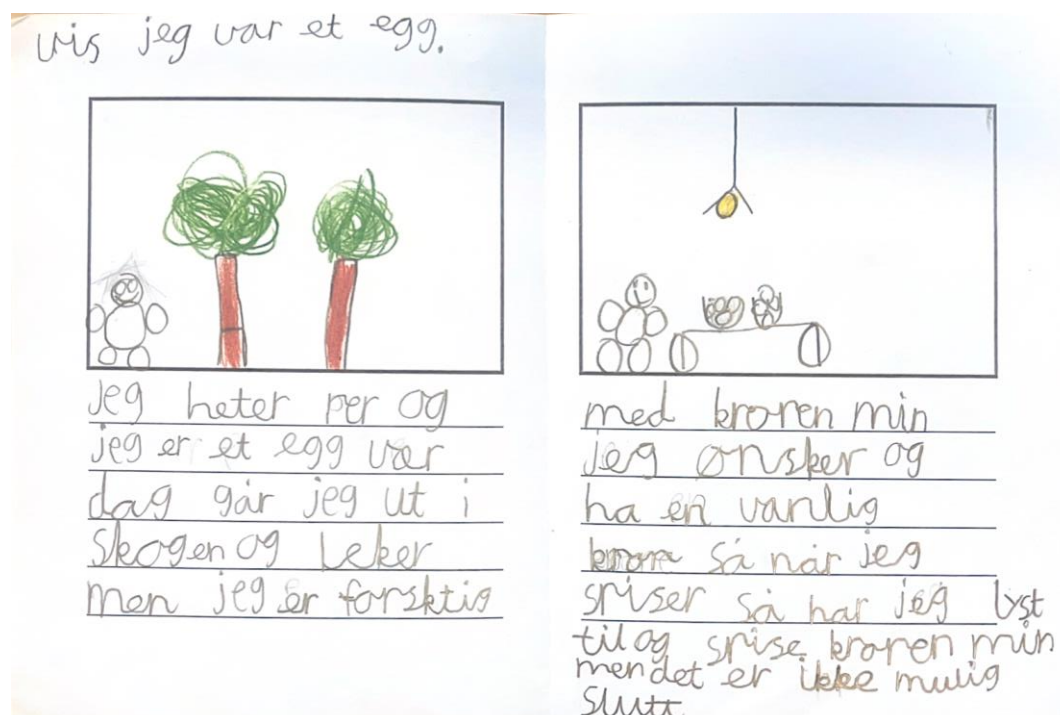 vis jeg var et egg.
jeg heter per og
jeg er et egg vær
dag går jeg ut i
skogen og leker
men jeg er forsktig
med kroren min
jeg ønsker og
ha en vanlig
så når jeg
spiser så har jeg lyst
til og spise kroren min
men det er ikke mulig
slutt